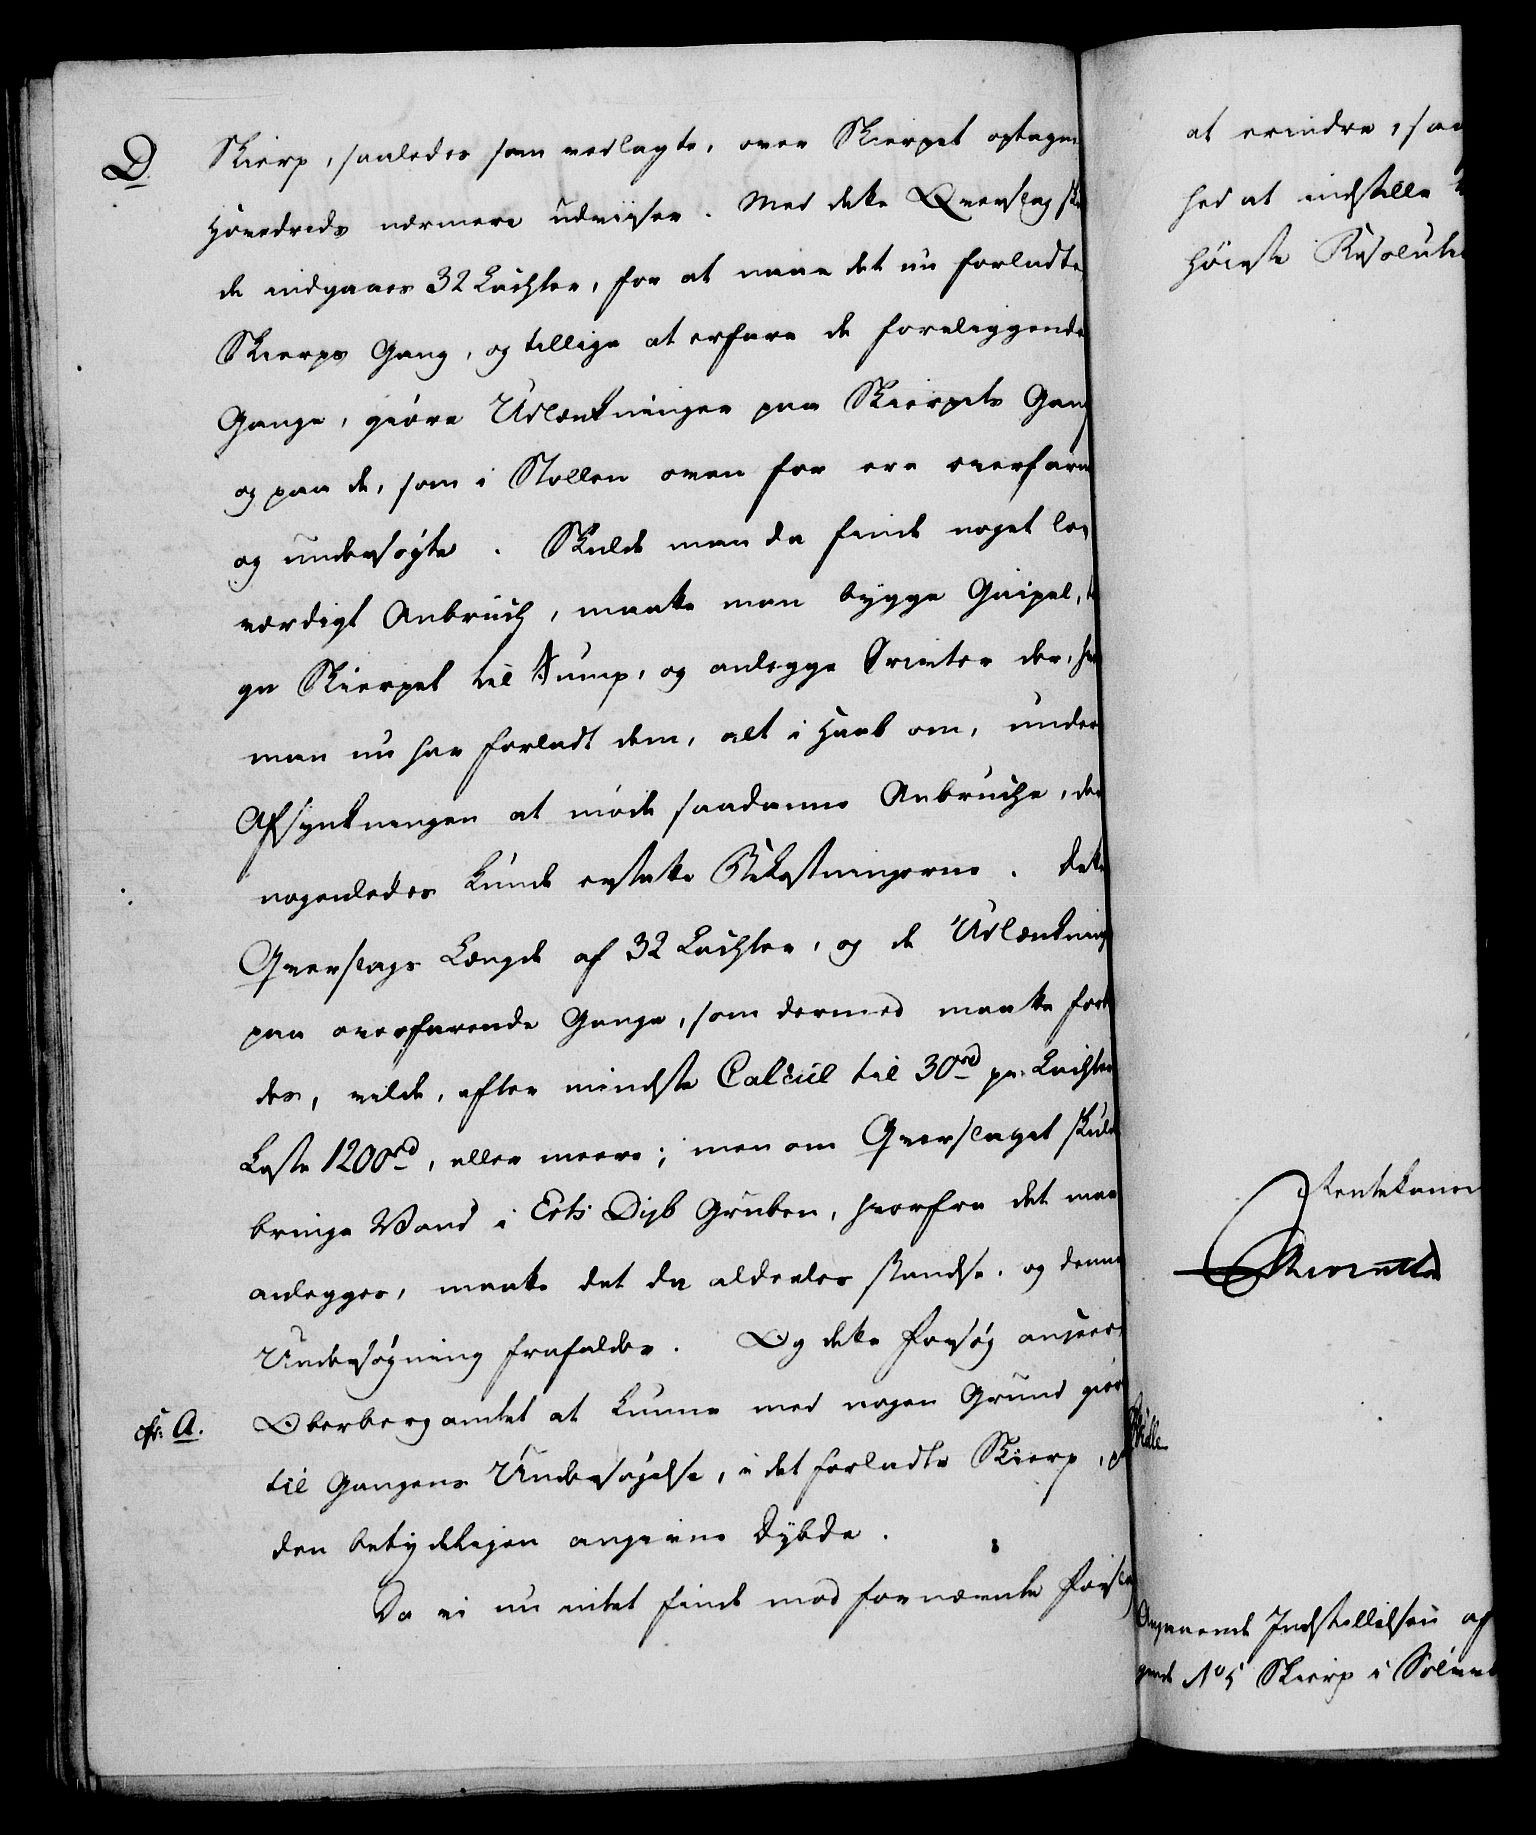 D.
Skierp, saaledes som vedlagte, over Skierpet optagne
Hovedrids nærmere udviiser. Med dette Qverslag sku
de indgaaes 32 Lachter, for at naae det nu forladte
Skierps Gang, og tillige at erfare de foreliggende
Gange, giøre Udlænkninger paa Skierpets Gang
og paa de, som i Stollen oven for ere overfarne
og undersøgte. Skulde man da finde noget lov
værdigt Anbruch, maatte man bygge Gaipel,
ge Skierpet til Sump, og anlegge Drivter der, hvor
man nu har forladt dem, alt i Haab om, under
Afsynkningen at møde saadanne Anbrüche, der
nogenledes kunde erstatte Bekostningerne. Dette
Qverslags Længde af 32 Lachter, og de Udlænkning
paa overfarende Gange, som dermed maatte forbin
des, vilde, efter mindste Calcül til 30 rd pr. Lachter
koste 1200 rd, eller meere; men om Qverslaget skulde
bringe Vand i Erts Dyb Gruben, hvorfra det maae
anlegges, maatte det da aldeeles standse, og denne
Undersøgning frafaldes. Og dette Forsøg ansees
cfr. A.
Oberbergamtet at kunne med nogen Grund giøre
til Gangens Undersøgelse, i det forladte Skierp, p
den betydeligen angivne Dybde.
Da vi nu intet finde mod fornævnte Forslag
at erindre, saa
hed at indstille
høieste Resoluti
Rentekamm
Angaaende Indstillelsen af
gende No 5 Skierp i